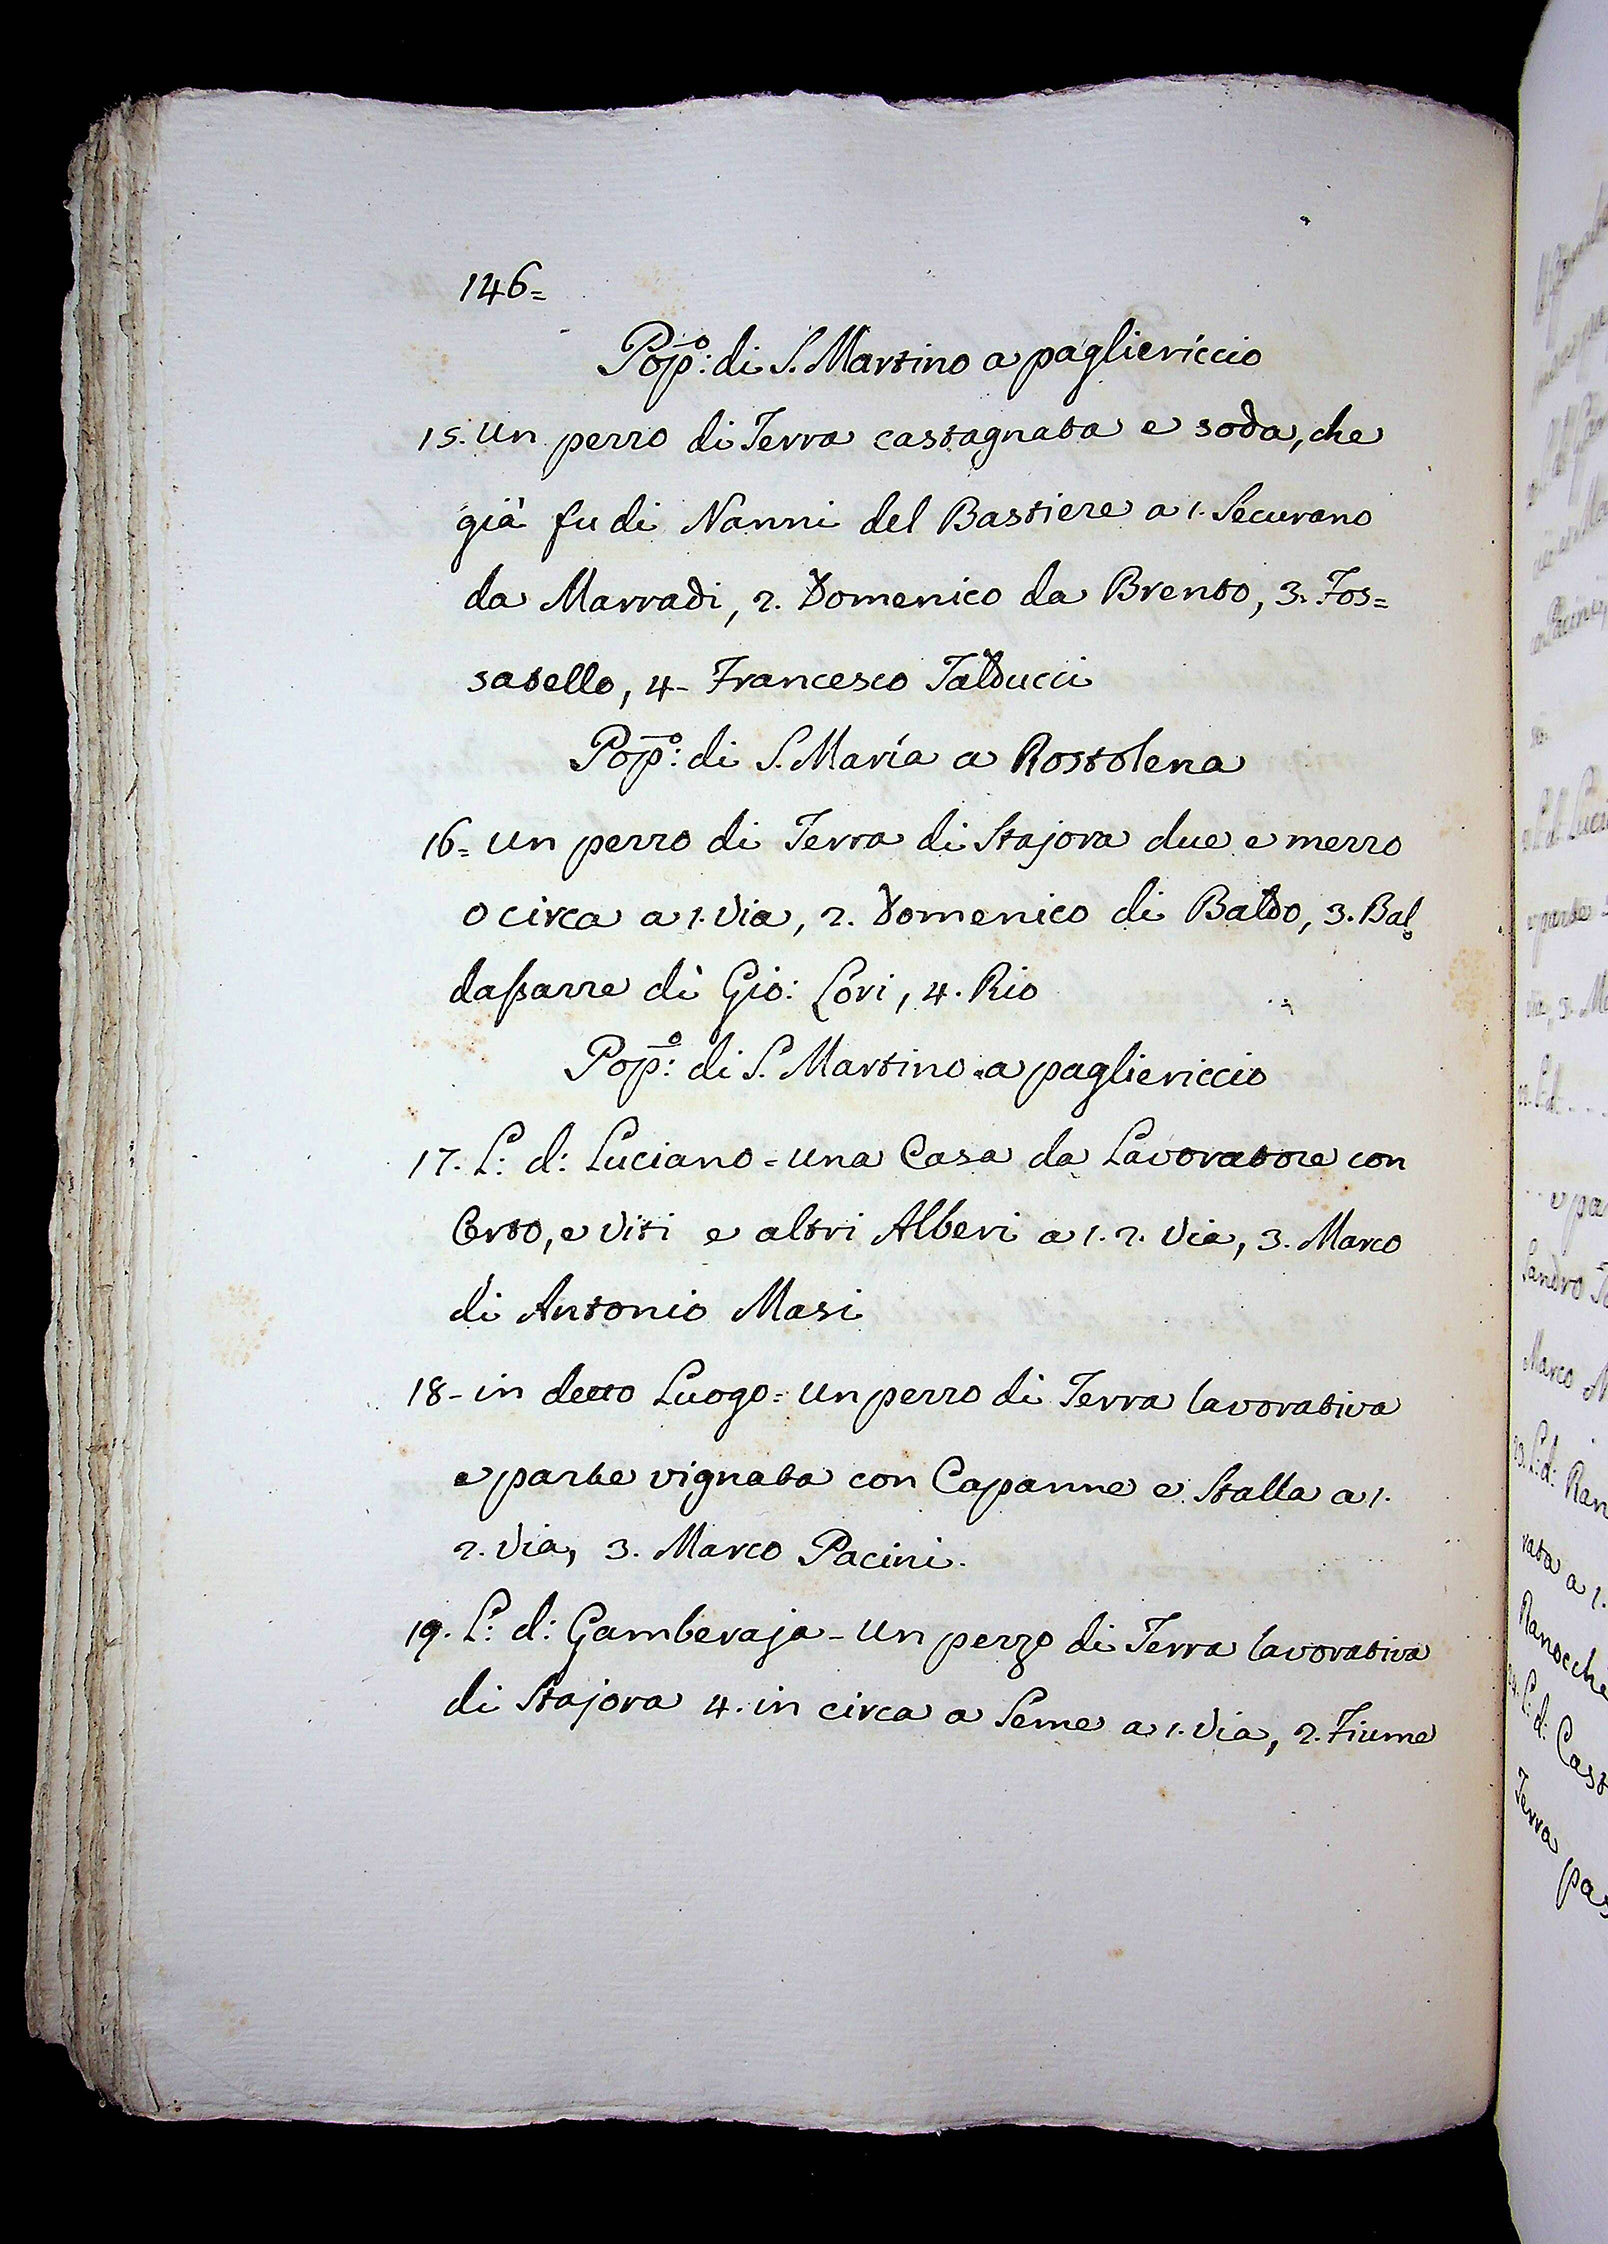 146=
Pop̄º: di S. Martino a pagliericcio
15. Un pezzo di Terra castagnata e soda, che
già fu di Nanni del Bastiere a 1. Securano
da Marradi, 2. Domenico da Brento, 3. Fos=
satello, 4- Francesco Talducci
Pop̄º: di S. Maria a Rostolena
16= Un pezzo di Terra di Stajora due e mezzo
o circa a 1. Via, 2. Domenico di Baldo, 3. Bal
dassarre di Gio: Lori, 4. Rio
Pop̄º: di S. Martino a pagliericcio
17. L: d: Luciano = una Casa da Lavoratore con
Corto, e Viti e altri Alberi a 1. 2. Via, 3. Marco
di Antonio Masi
18- in detto Luogo = Un pezzo di Terra lavorativa
e parte vignata con Capanne e Stalla a 1.
2. Via, 3. Marco Pacini.
19. L: d: Gamberaja - Un pezzo di Terra lavorativa
di Stajora 4. in circa a Seme a 1. Via, 2. Fiume
a Pacini,
a L: d: Luci
e parte
via, 3. Ma
L: d: . . .
. . . e pa
Sandro
Marco M
23. L: d: Ran
rata a 1.
Ranocche
24. L: d: Cast
Terra pas